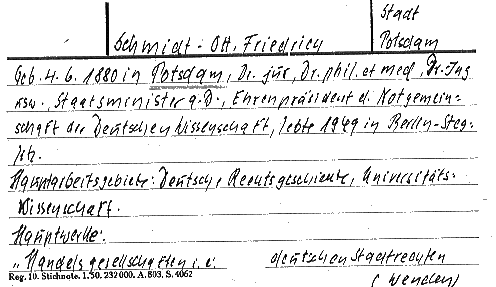 Stadt
Schmidt-Ott, Friedrich Potsdam
Geb. 4. 6. 1880 in Potsdam, Dr. jur., Dr. phil. et med., Dr.-Ing
usw., Staatsminister a.D., Ehrenpräsident d. Notgemein-
schaft der Deutschen Wissenschaft, lebte 1949 in Berlin-Steg-
litz.
Hauptarbeitsgebiete: Deutsche Rechtsgeschichte, Universitäts-
Wissenschaft.
Hauptwerke:
„Handelsgesellschaften i. d. deutschen Stadtrechten
Reg. 10. Stichnote. 1.50. 232000. A. 803. S. 4062
(wenden)